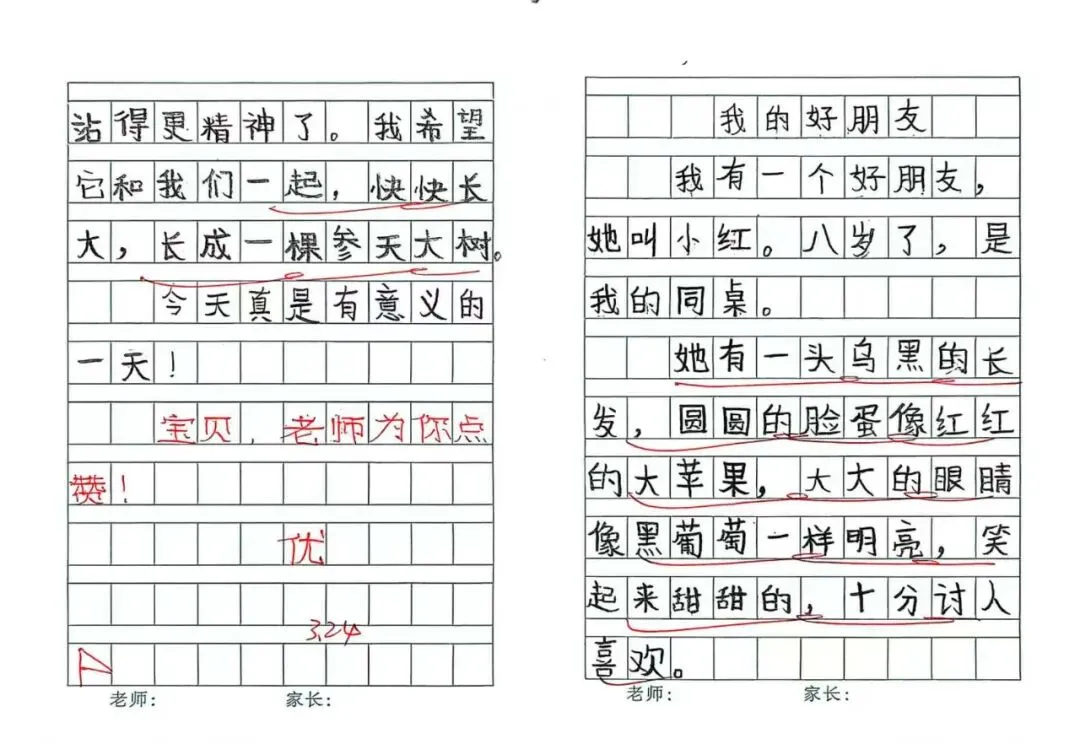 站得更精神了。我希望
它和我们一起，快快长
大，长成一棵参天大树。
今天真是有意义的
一天！
宝贝，老师为你点
赞！
优
3.24
老师：　家长：
我的好朋友
我有一个好朋友，
她叫小红。八岁了，是
我的同桌。
她有一头乌黑的长
发，圆圆的脸蛋像红红
的大苹果，大大的眼睛
像黑葡萄一样明亮，笑
起来甜甜的，十分讨人
喜欢。
老师：　家长：